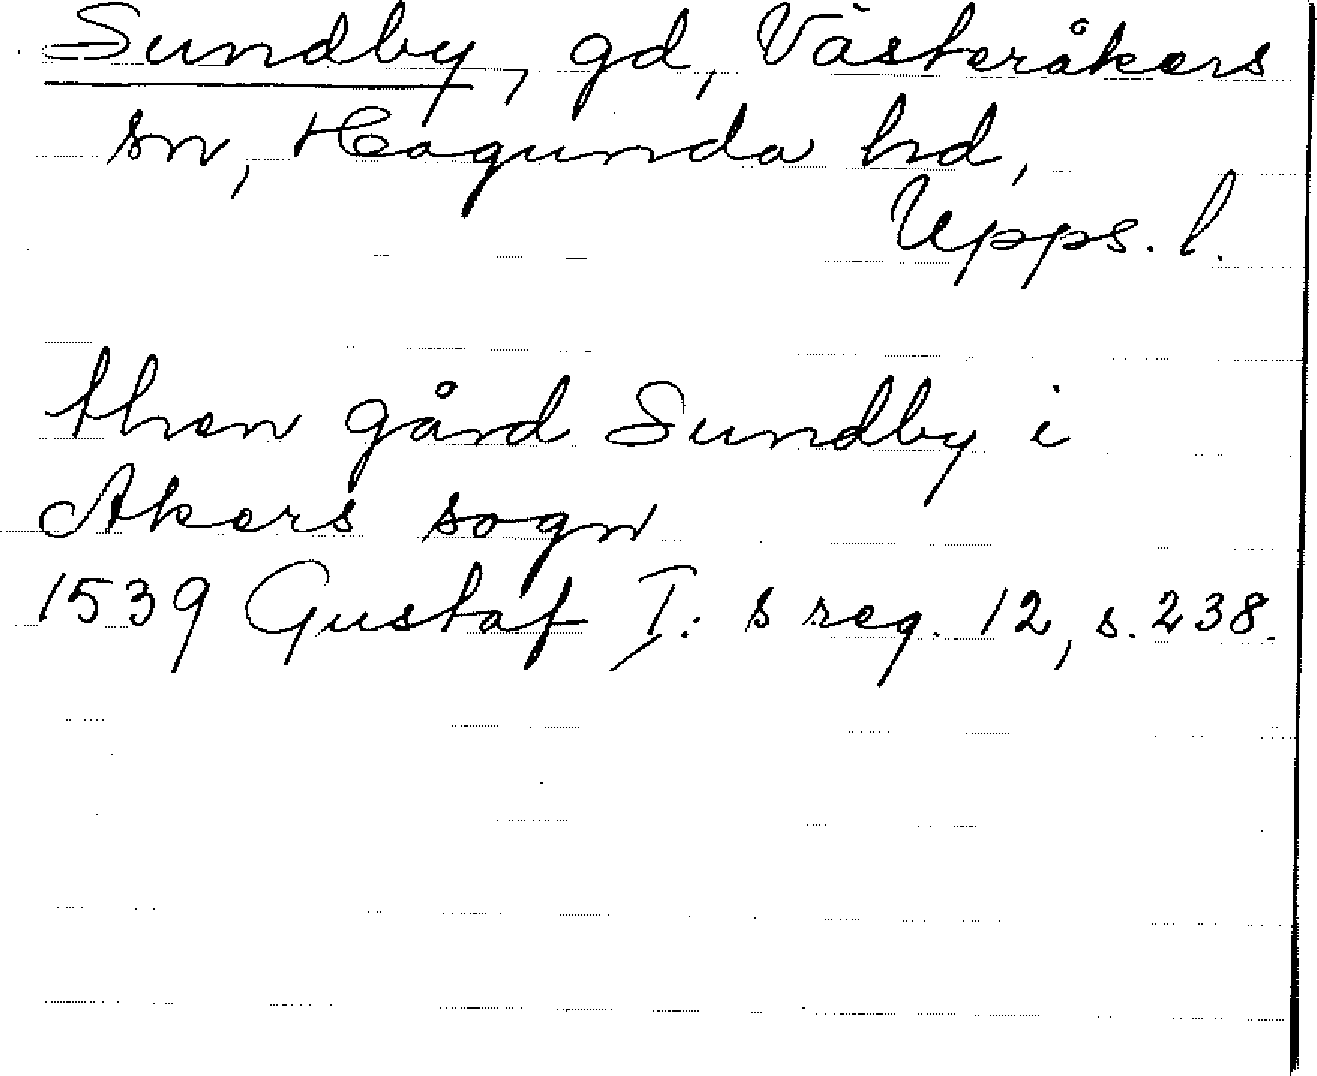 Sundby, gd, Västeråkers
sn, Hagunda hd,
Upps. l.
then gård Sundby i
Akers sogn
1539 Gustaf I: s reg. 12, s. 238.